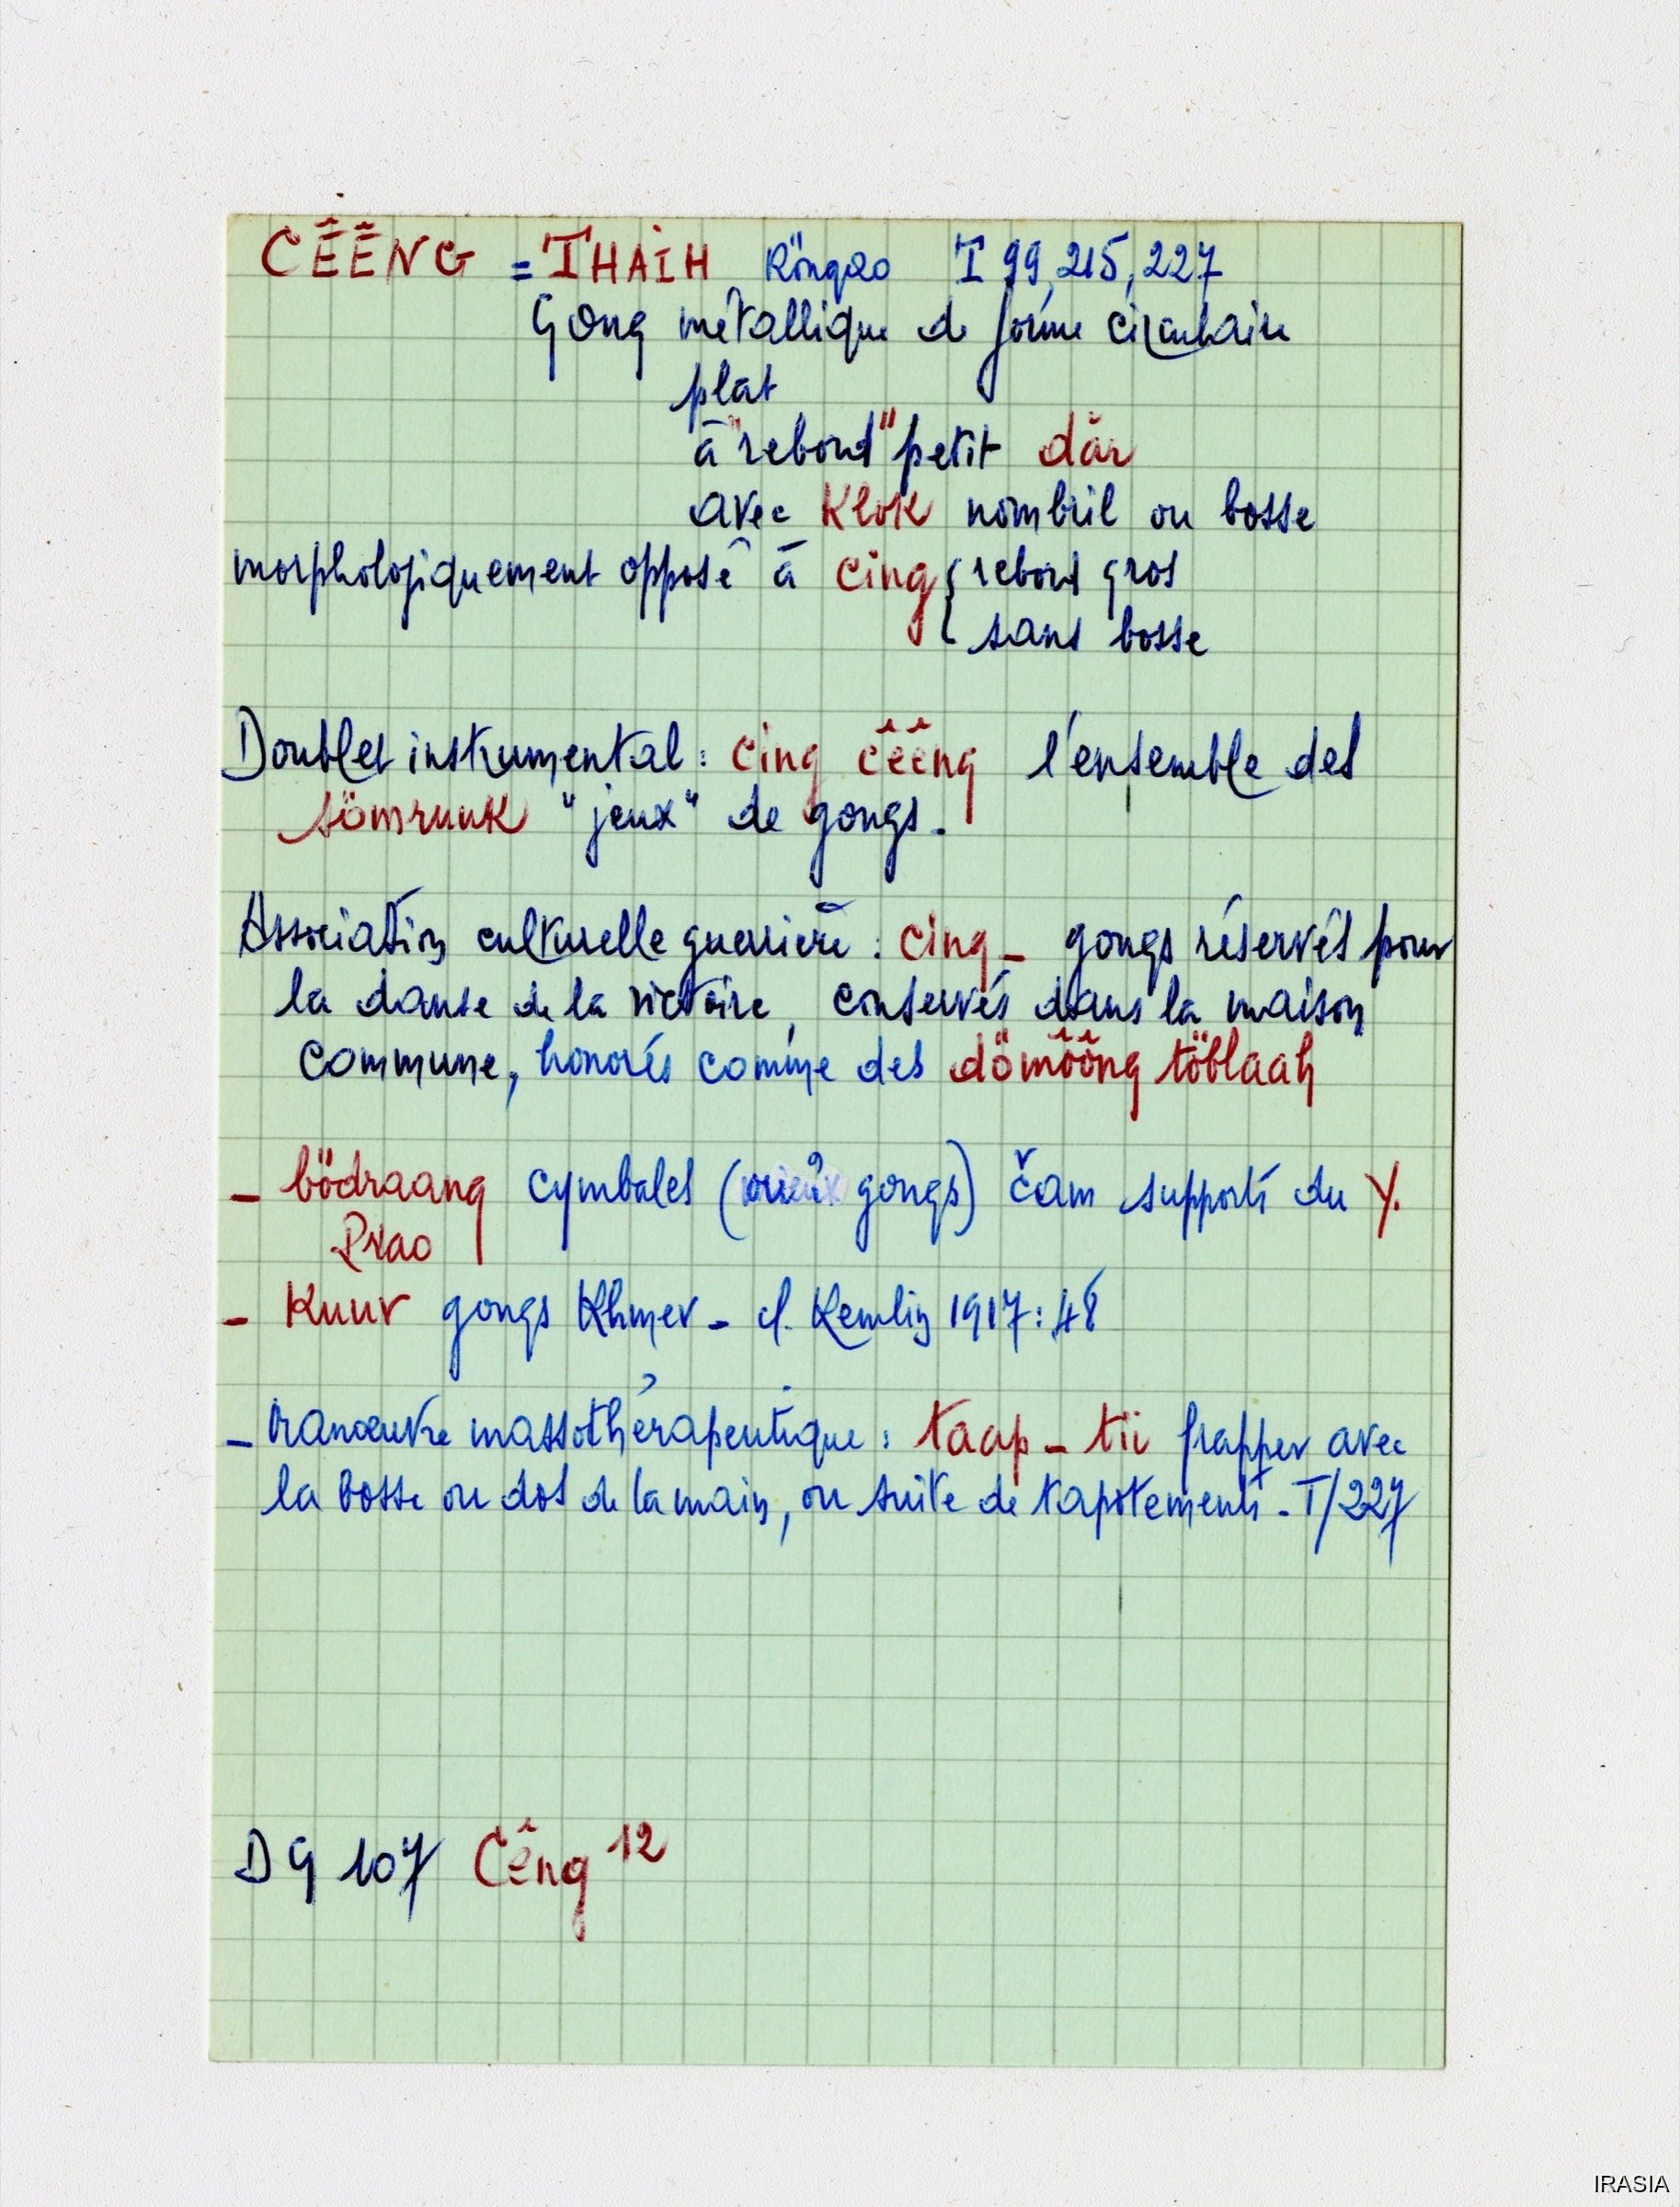 CÊÊNG = THAIH Röngao T 99, 215, 227
Gong métallique de forme circulaire
plat
à "rebord" petit dăr
avec klok nombril ou bosse
morphologiquement opposé à cing { rebord gros
sans bosse
Doublet instrumental : cing čêêng l'ensemble des
sömrunk "jeux" de gongs.
Association culturelle guerrière : cing _ gongs réservés pour
la danse de la victoire, conservés dans la maison
commune, honorés comme des dömôông töblaah
_ bödraang cymbales (mieux gongs) čam supports du Y.
Prao
_ Kuur gongs Khmer _ cf. Kemlin 1917 : 48
_ manœuvre massothérapeutique : taap _ tii frapper avec
la bosse ou dos de la main, ou suite de tapotements. T/227
DG 107 Cêng 12
IRASIA